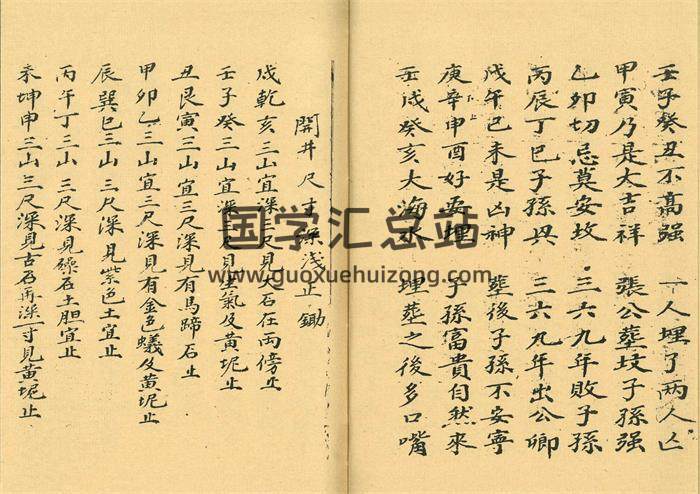 壬子癸丑不高强 一人埋了两人亡
甲寅乃是大吉祥 張公葬坟子孫强
乙卯切忌莫安坟 三六九年敗子孫
丙辰丁巳子孫 三六九年出公卿
戊午己未是凶神 葬後子孫不安寧
庚辛申酉好安埋 子孫富貴自然來
壬戌癸亥大海水 埋葬之後多口嘴
開井尺寸深浅止鋤
戌乾亥三山宜深三尺見大石在两傍止
壬子癸三山宜深三尺見生氣及黄坭止
丑艮寅三山宜三尺深見有馬蹄石止
甲卯乙三山宜三尺深見有金色蟻及黄坭止
辰巽巳三山三尺深見紫色土宜止
丙午丁三山三尺深見礞石土胆宜止
未坤申三山三尺深見古石再深一寸見黄坭止
国学汇总站
www.guoxuehuizong.com